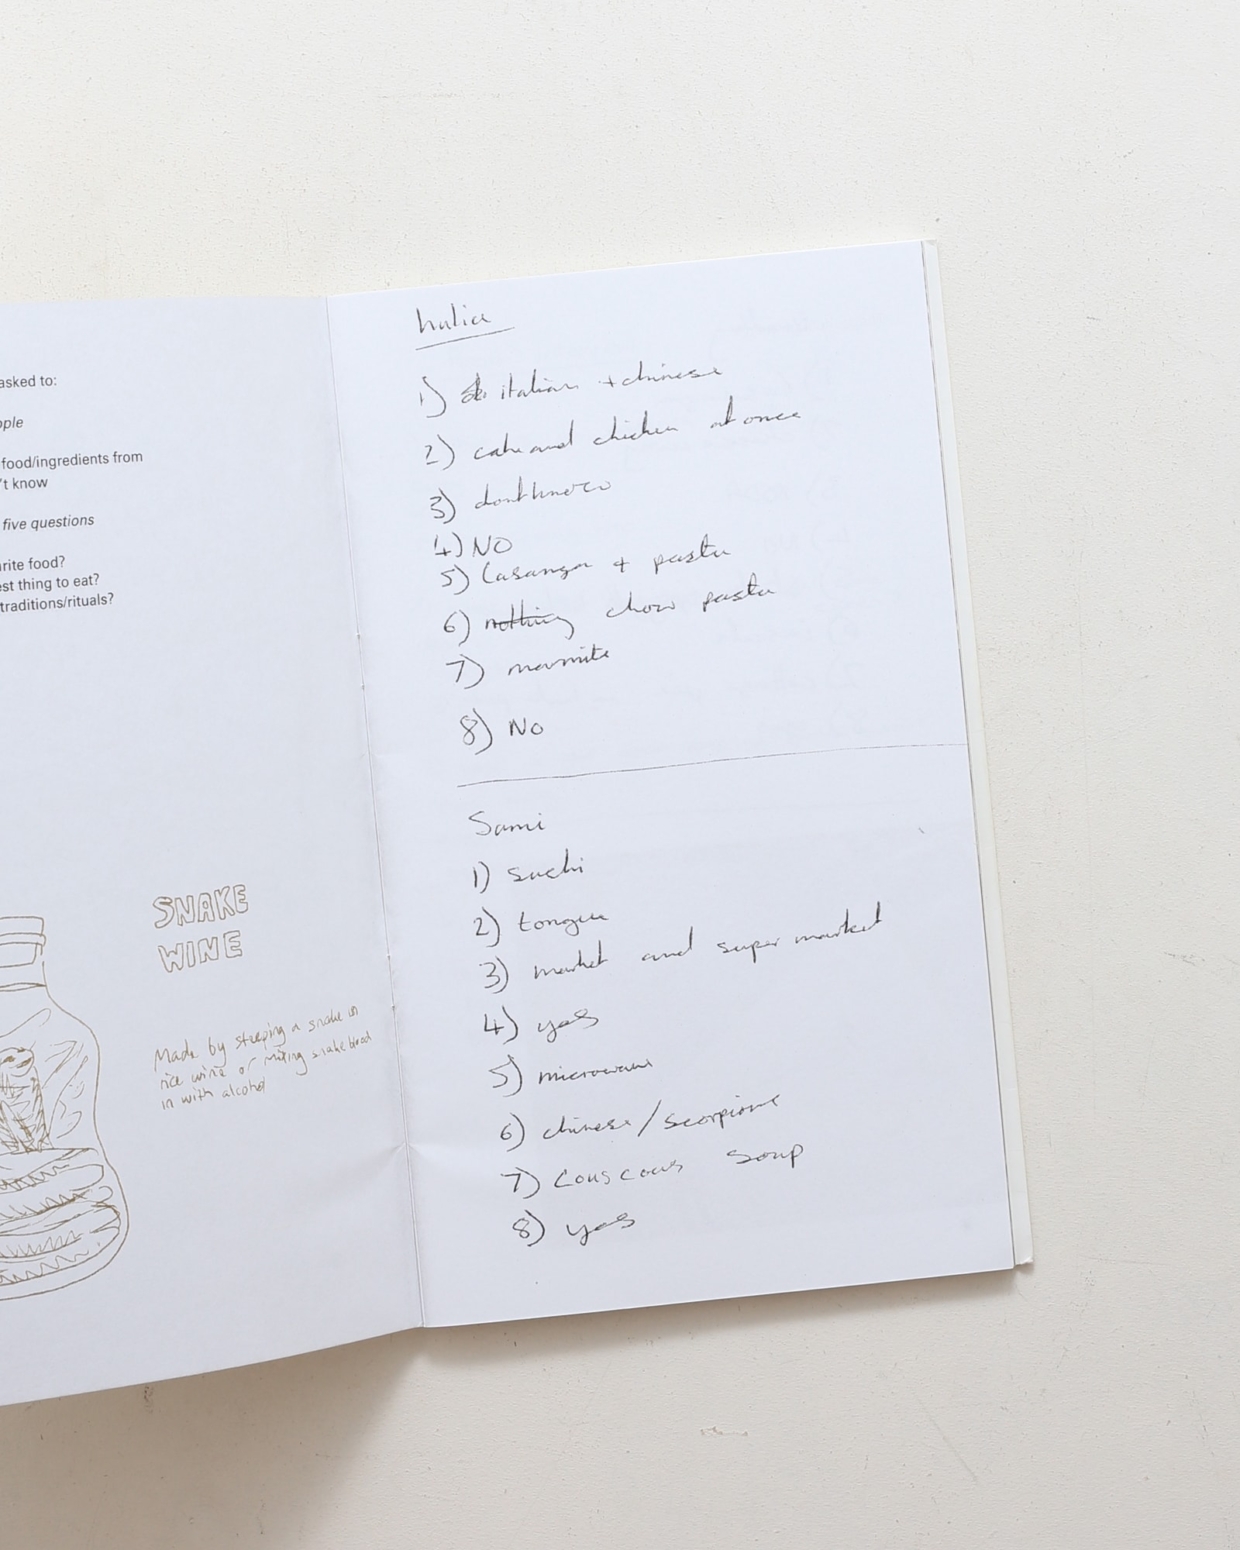 asked to:
ople
food/ingredients from
't know
five questions
rite food?
est thing to eat?
traditions/rituals?
SNAKE
WINE
Made by steeping a snake in
rice wine or mixing snake blood
in with alcohol
1) italian + chinese
2) cake and chicken at once
3) dont know
4) NO
5) Lasanga + pasta
6) nothing chow pasta
7) marmite
8) NO
Sami
1) suchi
2) tongue
3) market and super market
4) yes
5) microwave
6) chinese / scorpions
7) Couscous soup
8) yes